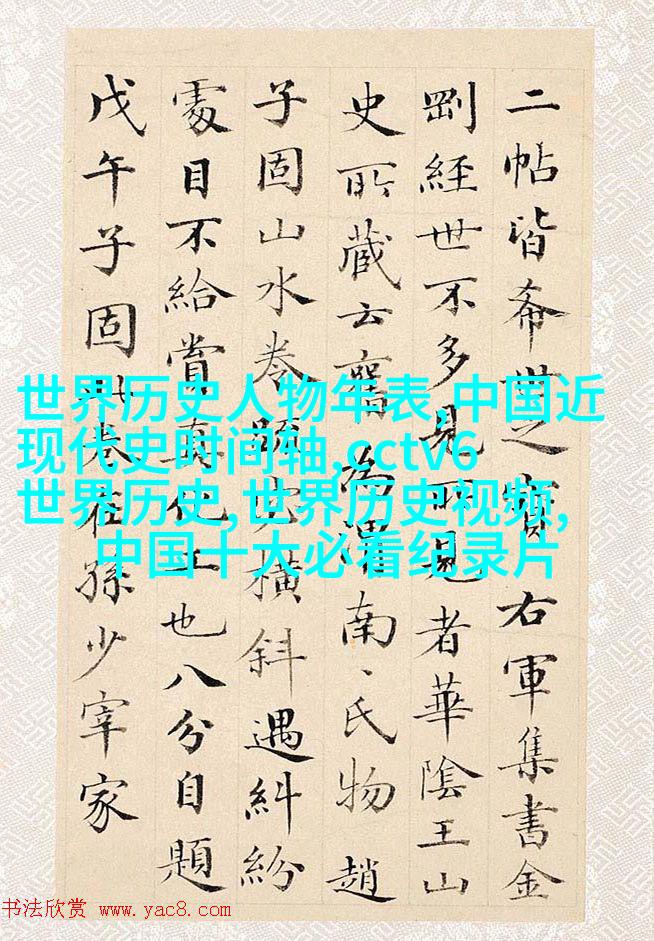 二帖皆希世之寶右軍集書金
剛經世不多見所見者華陰王山
史所藏云舊為渭南丶氏物趙
子固山水卷疏橫斜遇糾紛
處目不給賞真化工也八分自題
戊午子固卷在孫少宰家
世界历史人物年表,中国近
现代史时间轴,cctv6
世界历史,世界历史视频,
中国十大必看纪录片
书法欣赏 www.yac8.com